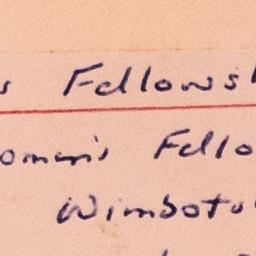 s Fellowsh
omen's Fello
Wimboto